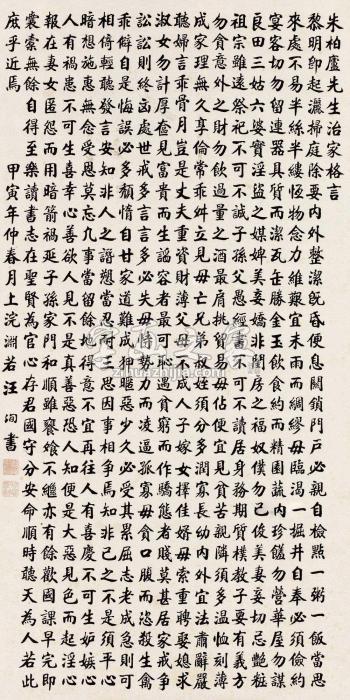 朱柏盧先生治家格言
黎明即起灑掃庭除要內外整潔既昏便息關鎖門戶必親自檢點一粥一飯當思
來處不易半絲半縷恆物念力維艱宜未雨而綢繆毋臨渴一掘井自奉必須儉約
宴客切勿留連器具質而潔瓦缶勝金玉飲食約而精園蔬珍饈勿營華屋勿謀
良田三姑六婆實淫盜之媒婢美妾嬌非閨房之福奴僕勿已俊美妻妾切忌豔粧
祖宗雖遠祭祀不可不誠子孫愚經書不可不讀居身務期質樸教子要有義方
勿貪意外之財勿飲過量之酒肩挑貿易毋佔便宜見貧苦親鄰須多溫恤刻薄
成家理無久享倫常乖舛立見毋亡兄弟叔姪須分多潤寡長幼內外宜法肅辭嚴
聽婦言乖骨月豈是丈夫重資財薄父母不成人子嫁女擇佳婿毋索重聘娶媳求
淑女勿計厚奩見富貴而生諂容者最可恥遇貧窮而作驕態者賤莫甚居家戒爭
訟訟則終凶處世戒多言言多必失毋恃勢力而凌逼孤寡毋貪口腹而恣殺生禽
乖僻自是悔誤必多頹惰自甘家道難成狎暱惡少久必受其累屈志老成急則可
相倚輕聽發言安知非人之譖愬當忍耐三思因事相爭焉知非己之不是須平心
暗想施惠無念受恩莫忘凡事當留餘地得意不宜再往人有喜慶不可生妒嫉心
人有禍患不可生喜幸心善欲人見不是真善惡恐人知便是大惡見色而起淫心
報在妻女匿怨而用暗箭禍延子孫家門和順雖饔飧不繼亦有餘歡國課早完即
囊橐無餘自得至樂讀書志在聖賢為官心存君國守分安命順時聽天為人若此
庶乎近焉 甲寅年仲春月上浣淵若汪洵書